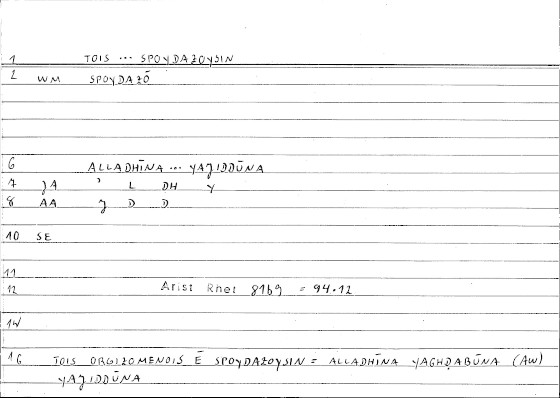 1 TOIS ... SPOYDAZOYSIN
2 WM SPOYDAZŌ
6 ALLADHĪNA ... YAJIDDŪNA
7 JA ' L DH Y
8 AA J D D
10 SE
11
12 Arist Rhet 81b9 = 94.12
14
16 TOIS ORGIZOMENOIS Ē SPOYDAZOYSIN = ALLADHĪNA YAGHḌABŪNA (AW)
YAJIDDŪNA